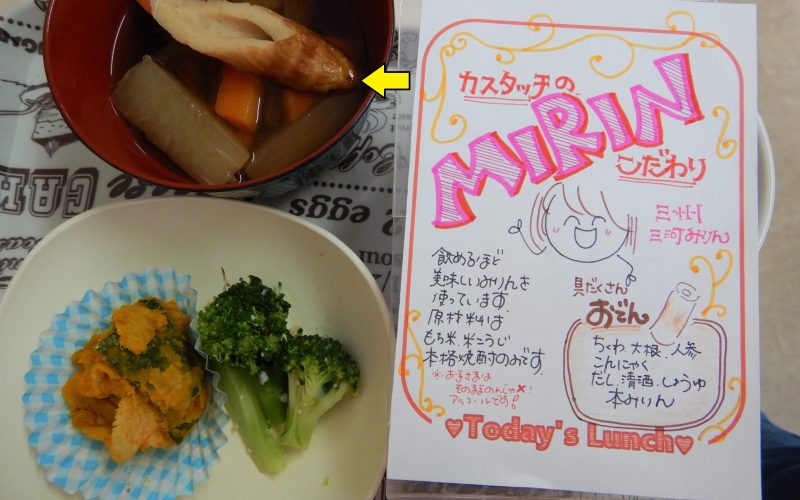 カスタッチの
MIRIN
こだわり
三州
三河みりん
飲めるほど
美味しいみりんを
使っています。
原材料は
もち米、米こうじ
本格焼酎のみです。
※お子さまは
そのままのんじゃ✖!
アルコールです!
具だくさん
おでん
ちくわ、大根、人参
こんにゃく
だし、清酒、しょうゆ
本みりん
♥Today's Lunch♥
eggs